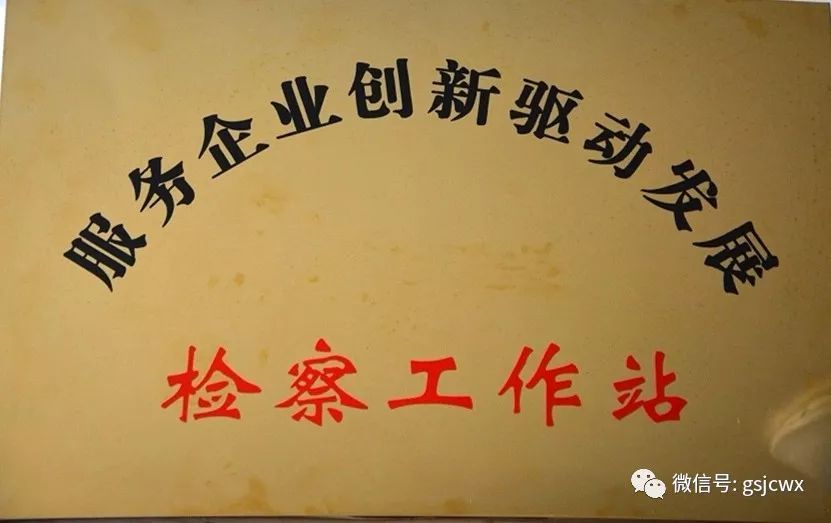 服务企业创新驱动发展
检察工作站
微信号: gsjcwx